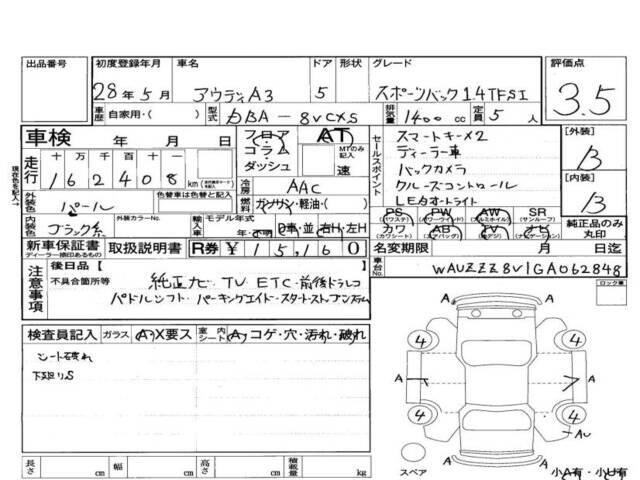 出品番号 初度登録年月 車名 ドア 形状 グレード 評価点
28年5月 アウディA3 5 スポーツバック1.4TFSI 3.5
車歴 自家用・( ) 型式 DBA-8VCXS 排気量 1400cc 定員 5人
車検 年 月 日 フロア コラム ダッシュ AT MTのみ記入 速
走行 十 万 千 百 十
162408km
現在色を記入→
外装色 パール 色替車は色替前の色
内装色 ブラック系 外装カラーNo. 輸入車 モデル年式 年・
冷房 AAC
燃料 ガソリン・軽油・( )
D車・並 右H・左H
セールスポイント
スマートキーX2
ディーラー車
バックカメラ
クルーズコントロール
LEDオートライト
PS (パワステ) PW (パワーウインド) AW (アルミホイル) SR (サンルーフ)
カワ (カワシート) AB (エアバッグ) TV (地デジ) ナビ (ナビゲーション) 純正品のみ丸印
[外装]
B
[内装]
B
新車保証書 ディーラー印のあるもの 取扱説明書 R券 ¥15,160 名変期限 月 日迄
注意事項 後日品( )
不具合箇所等 純正ナビ TV ETC 前後ドラレコ
パドルシフト・パーキングエイド・スタートストップシステム
車台No. WAUZZZ8V1GA062848
ロック車
検査員記入 ガラス A・X要ス 室内シート A・コゲ・穴・汚れ・破れ
シート破れ
下廻りS
4 4
A A A A
4 4
A AU
スペア 小A有・小U有
長さ cm 幅 cm 高さ cm 積載量 kg